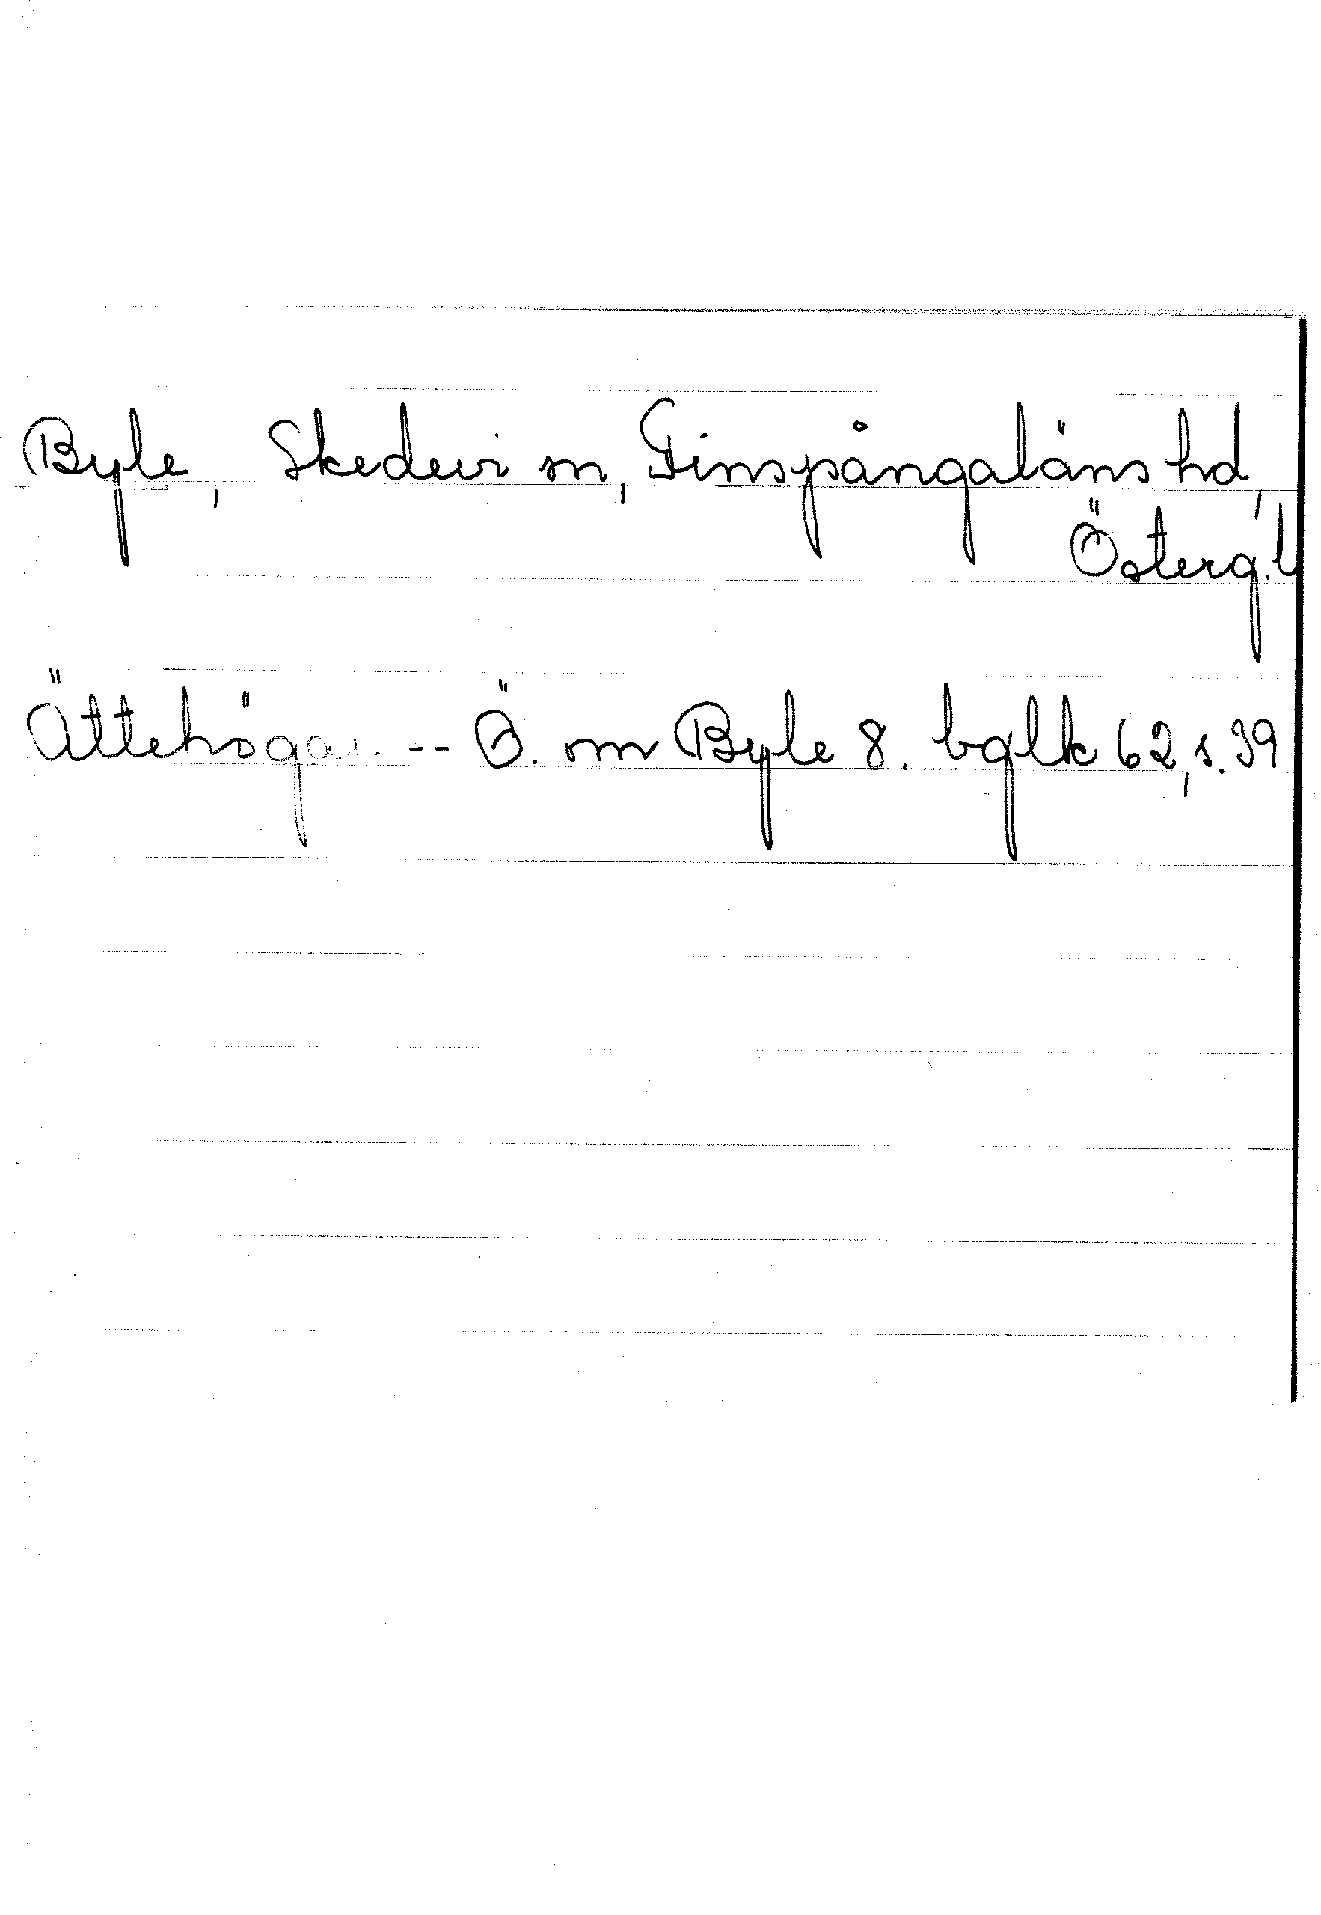 Byle, Skedevi sn, Finspångaläns hd,
Österg. l
Ättehögar. -- Ö. om Byle 8. bglk 62, s. 39